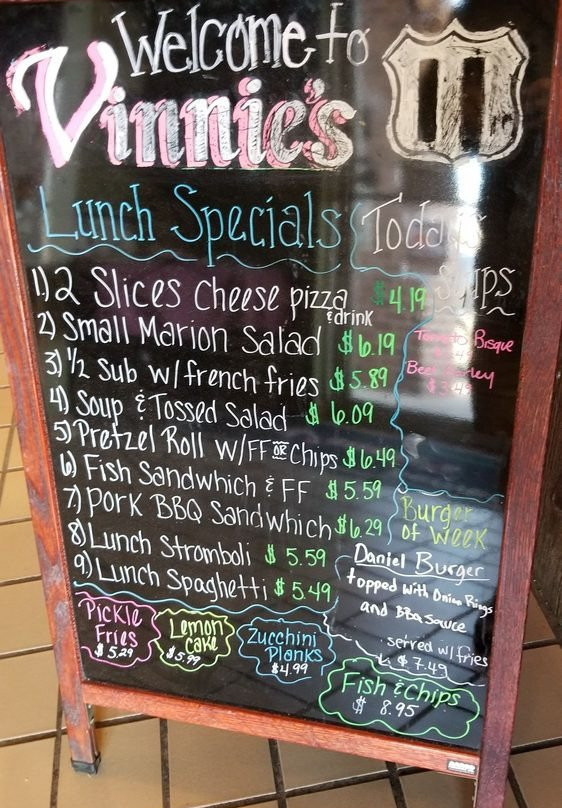 Welcome to
Vinnie's
11
Lunch Specials
1) 2 Slices Cheese pizza & drink $4.19
2) Small Marion Salad $6.19
3) ½ Sub w/french fries $5.89
4) Soup & Tossed Salad $6.09
5) Pretzel Roll w/FF or Chips $6.49
6) Fish Sandwhich & FF $5.59
7) Pork BBQ Sandwhich $6.29
8) Lunch Stromboli $5.59
9) Lunch Spaghetti $5.49
Todays
Soups
Tomato Bisque
Beef Barley
Burger
of Week
Daniel Burger
topped with Onion Rings
and BBQ sauce
served w/ fries
$7.49
Pickle
Fries
$5.29
Lemon
Cake
$5.99
Zucchini
Planks
$4.99
Fish & Chips
$8.95